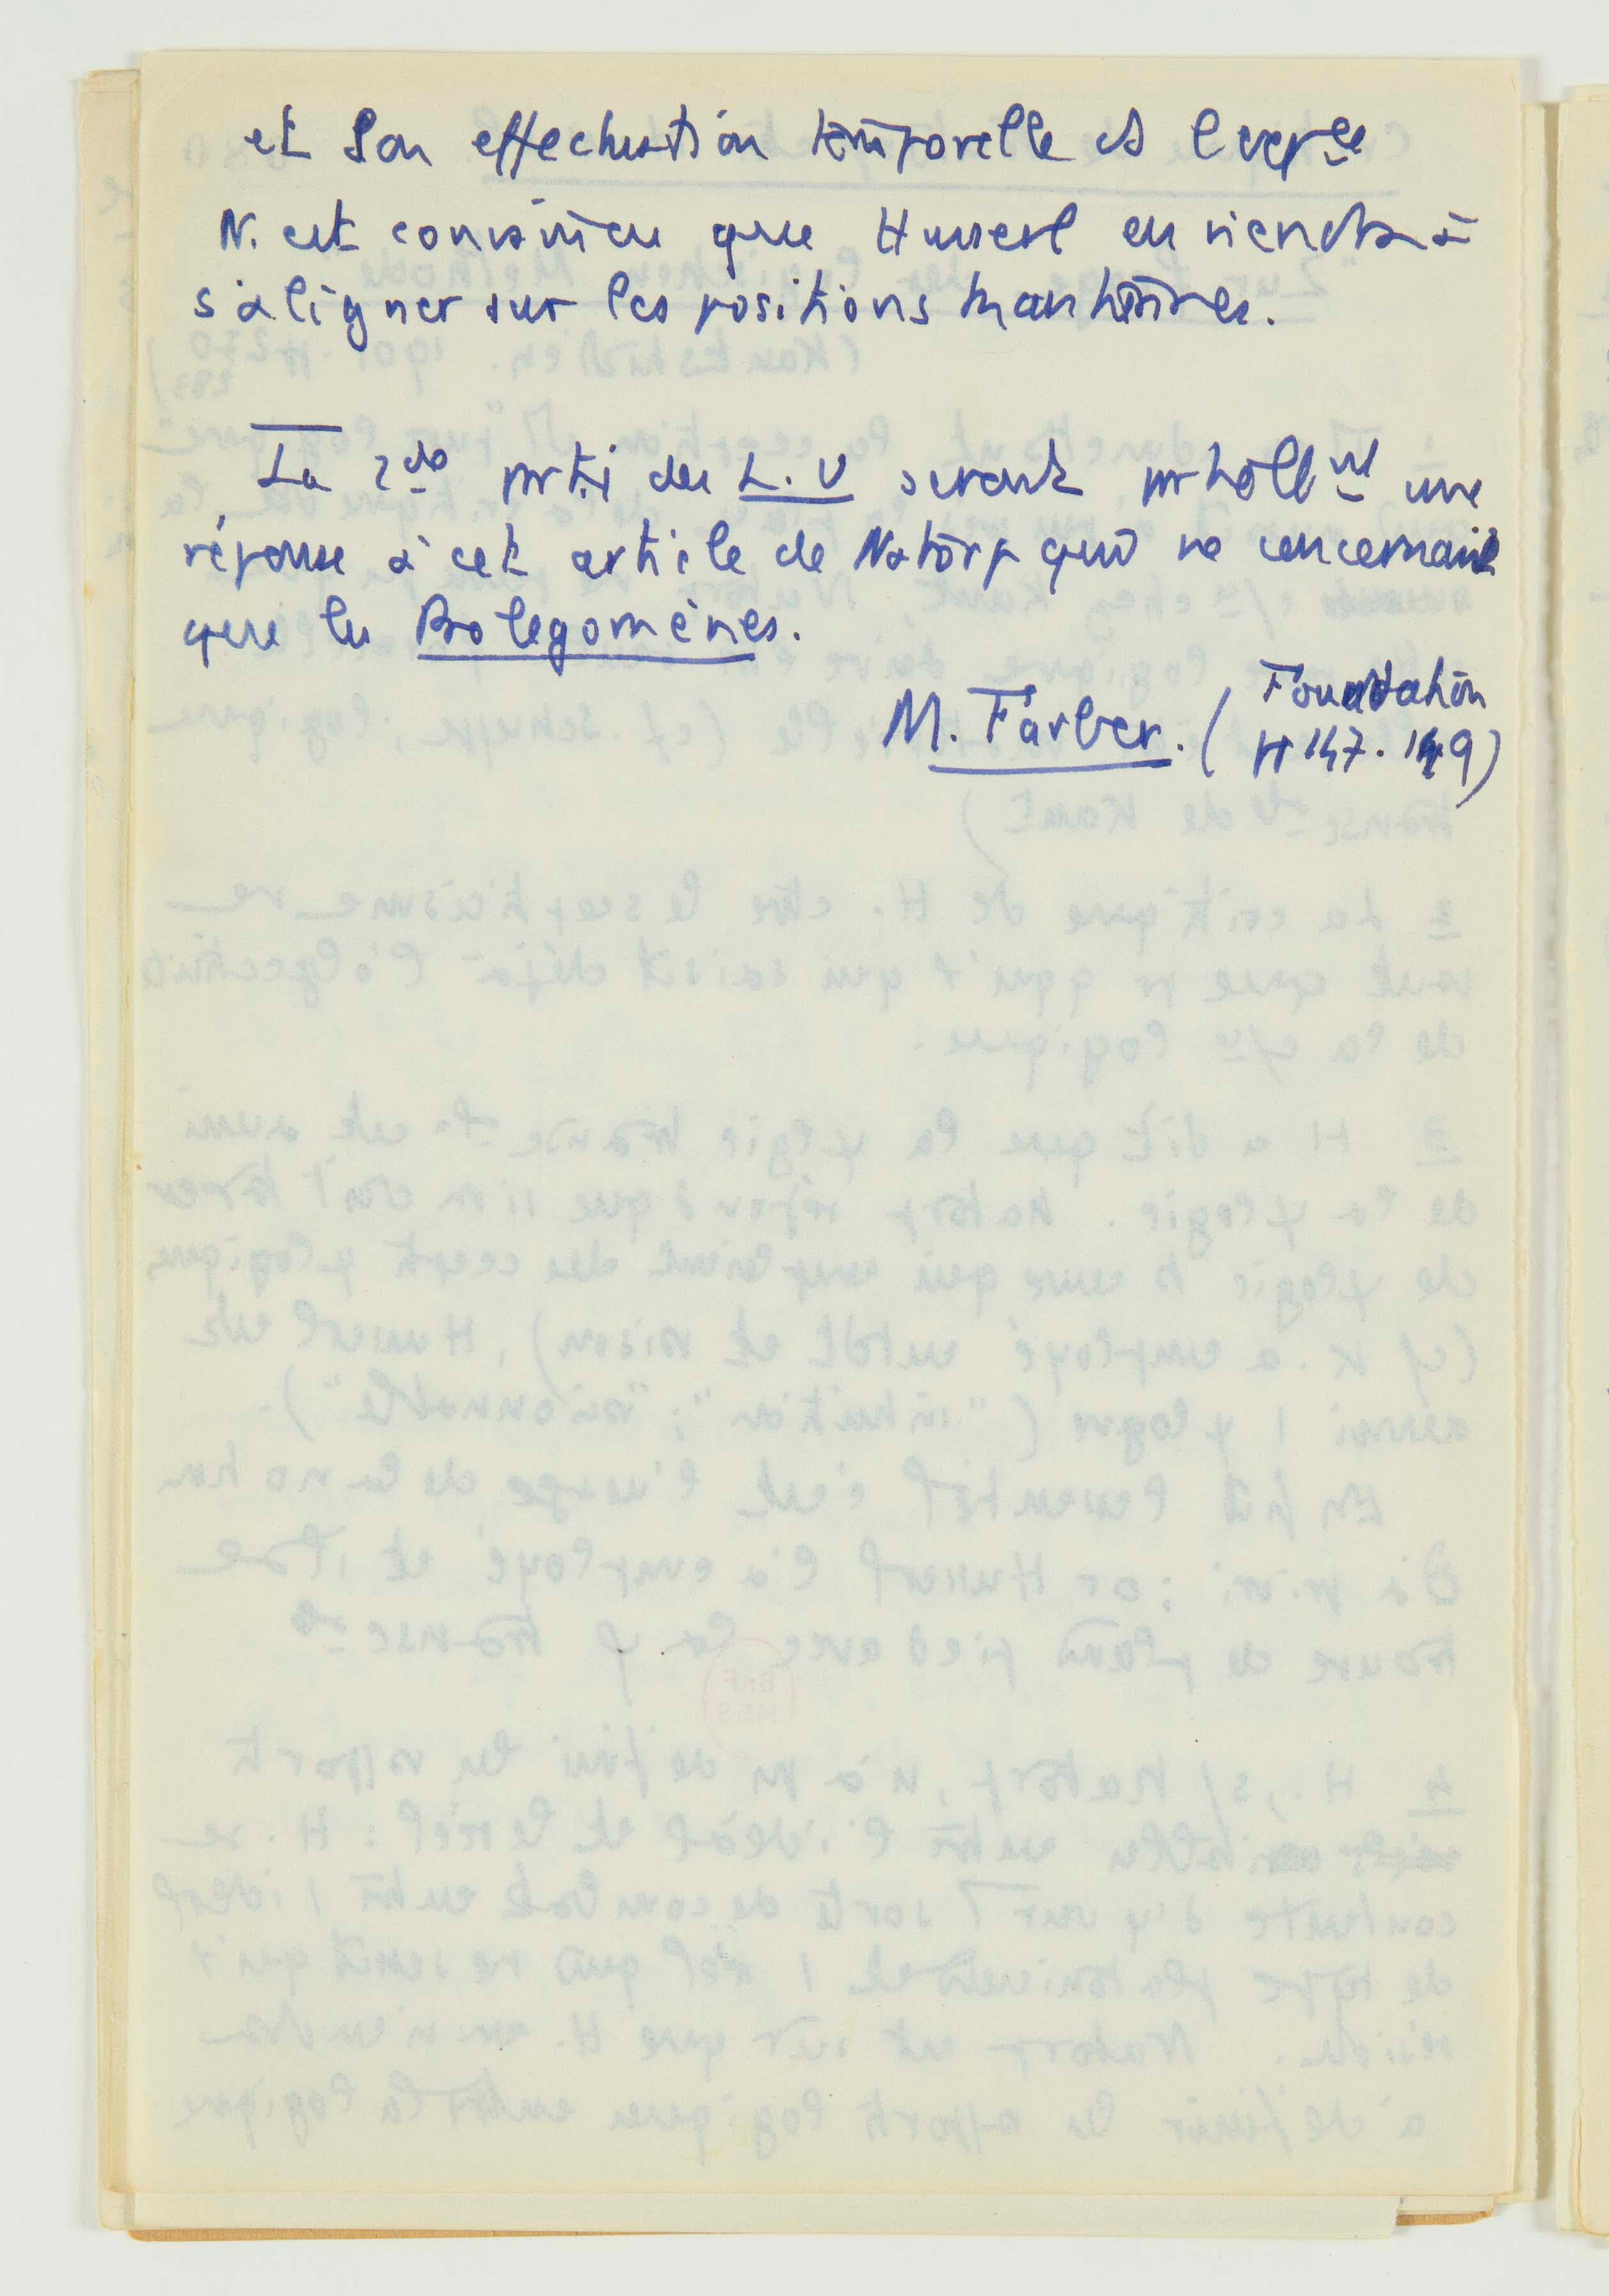 et son effectuation temporelle ds l'expce
N. est convaincu que Husserl en viendra à
s'aligner sur les positions kantiennes.
La 2de partie des L. U seront probablnt une
réponse à cet article de Natorp qui ne concernait
que les Prolegomènes.
M. Farber. ( Foundation
pp 147. 149)